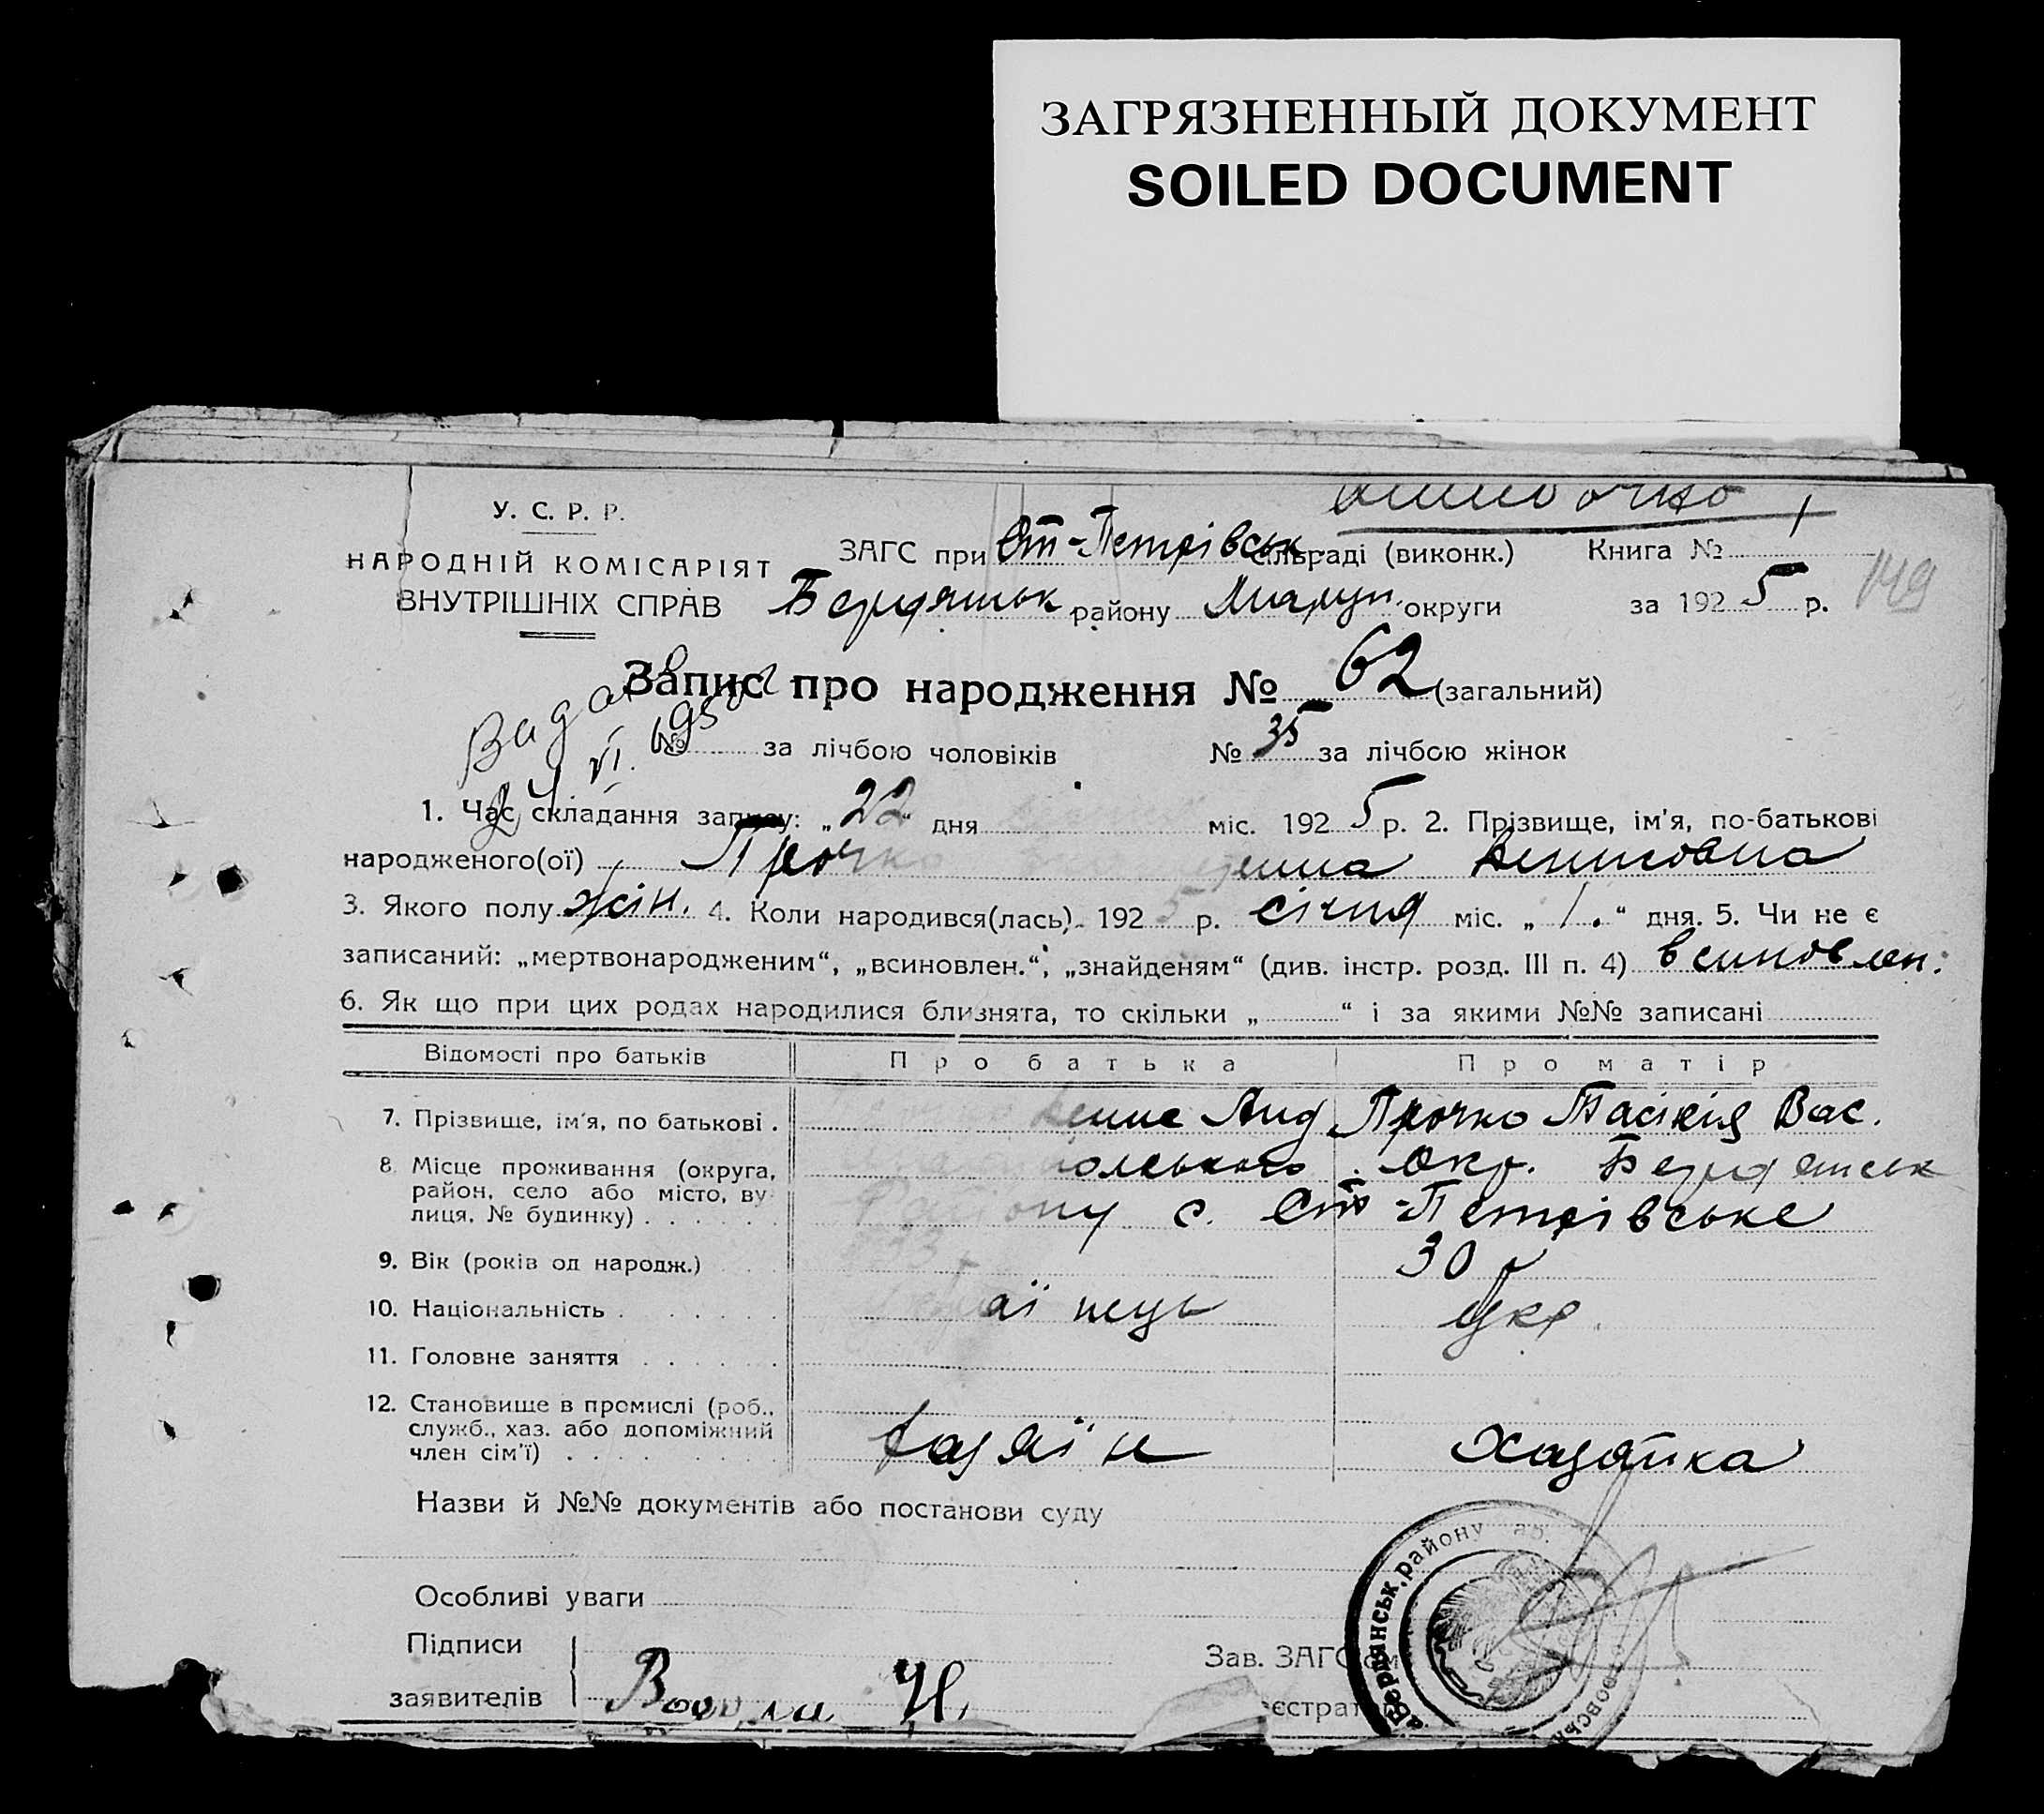 ЗАГРЯЗНЕННЫЙ ДОКУМЕНТ
SOILED DOCUMENT
У. С. Р. Р.
НАРОДНІЙ КОМІСАРІЯТ
ВНУТРІШНІХ СПРАВ
ЗАГС при Ст-Петрівськ сільраді (виконк.) Книга № 1
Бердянськ району Маріуп. округи за 1925 р. 149
Запис про народження № 62 (загальний)
№ за лічбою чоловіків № 35 за лічбою жінок
1. Час складання запису: „22“ дня міс. 1925 р. 2. Прізвище, ім'я, по-батькові
народженого(ої) Прочко Денисовна
3. Якого полу жін. 4. Коли народився(лась). 1925 р. січня міс. „1.“ дня. 5. Чи не є
записаний: „мертвонародженим“, „всиновлен.“, „знайденям“ (див. інстр. розд. III п. 4) всиновлен.
6. Як що при цих родах народилися близнята, то скільки „ “ і за якими №№ записані
Відомості про батьків Про батька Про матір
7. Прізвище, ім'я, по батькові . Денис Анд Прочко Тасікія Вас.
8. Місце проживання (округа, район, село або місто, вулиця, № будинку) . . . . . . окр. Бердянськ
Району с. Ст-Петрівське
9. Вік (років од народж.) 33 30
10. Національність аінець Укр.
11. Головне заняття
12. Становище в промислі (роб., служб., хаз. або допоміжний член сім'ї) хазяїн Хазяйка
Назви й №№ документів або постанови суду
Особливі уваги
Підписи
заявителів
Зав. ЗАГС'ом
Бердянськ. району